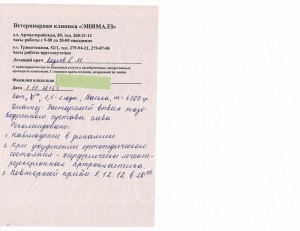 Ветеринарная клиника «ЭНИМАЛЗ»
ул. Артиллерийская, 99, тел. 260-21-11
часы работы с 9-00 до 20-00 ежедневно
ул. Трикотажная, 52/1, тел. 279-94-21, 279-07-06
часы работы круглосуточно
Лечащий врач
Фамилия владельца
Дата 1.11.2012
Кот, 1,5 года, Васька, m= 4300 гр
Диагноз: Застарелый вывих тазо-
бедренного сустава слева
Рекомендовано:
1. Наблюдение в динамике
2. При ухудшении ортопедического
состояния - хирургическое лечение -
резекционная артропластика
3. Повторный приём 8.12.12 в 20 00